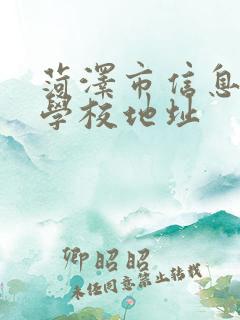 菏澤市信息
學校地址
卿昭昭
未經同意禁止轉載